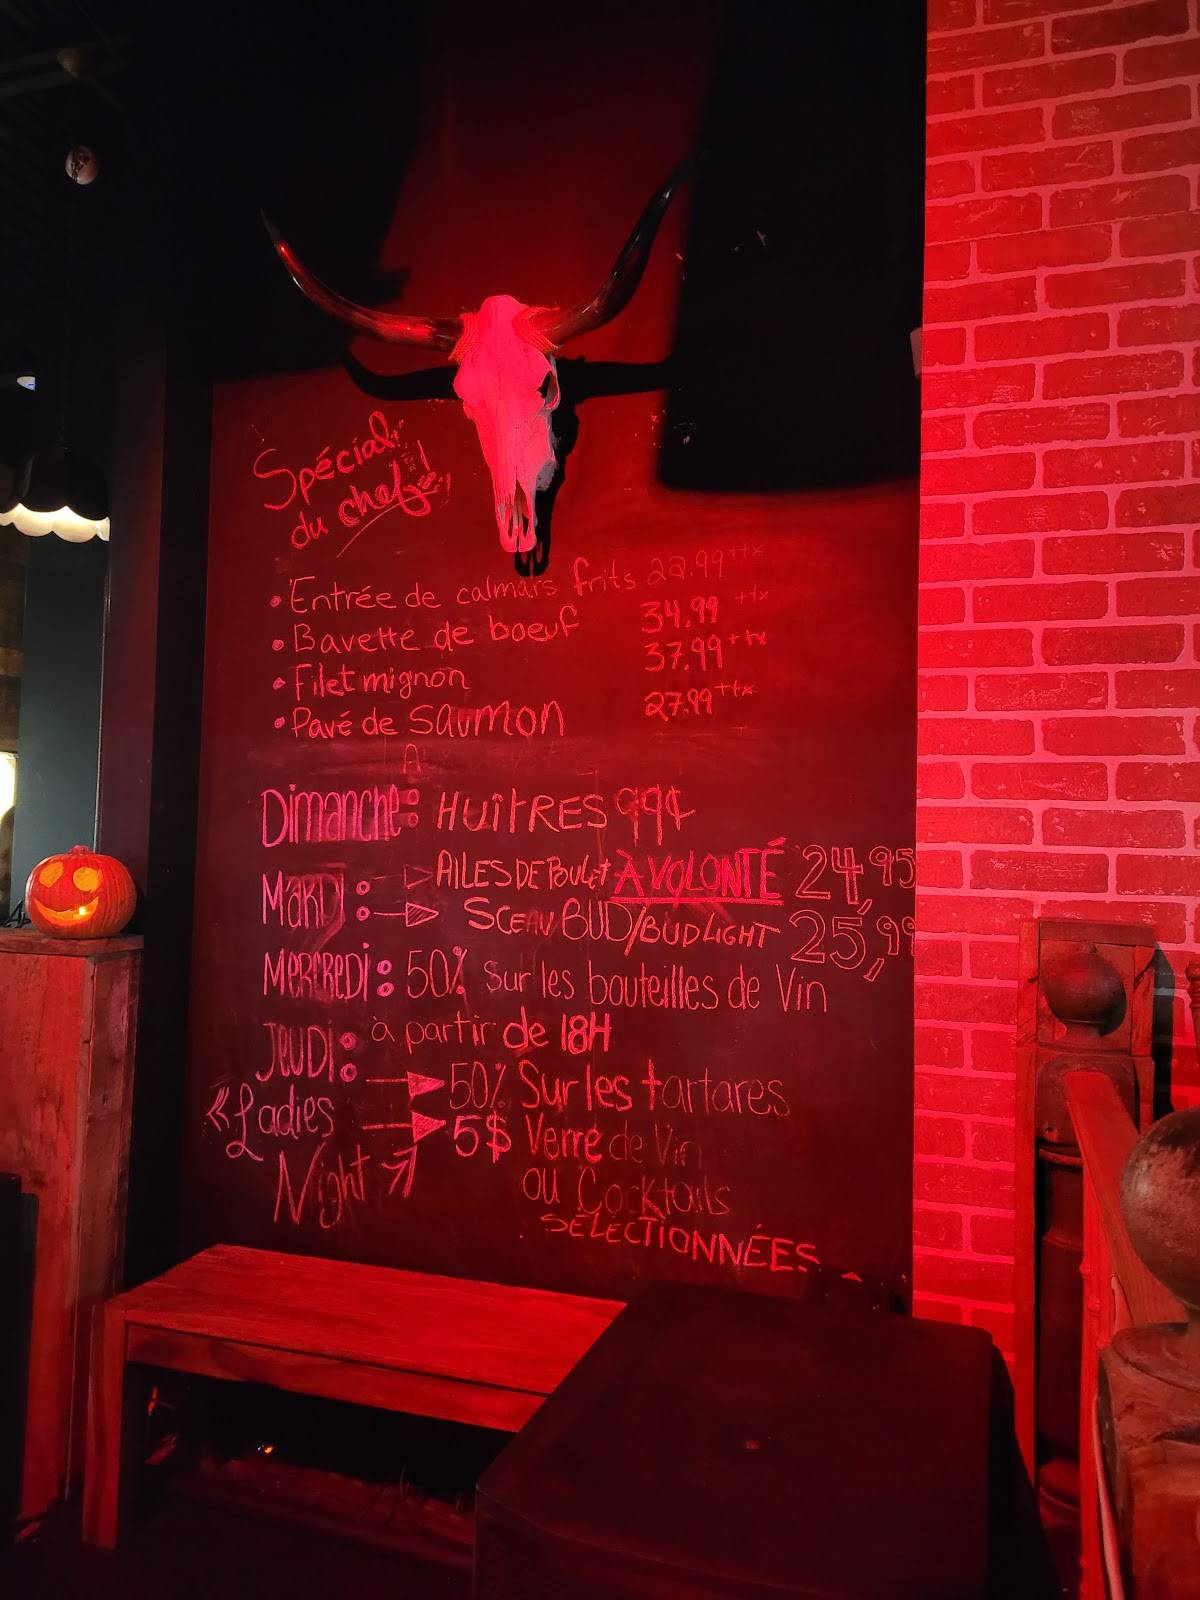 Spécial
du chef!
• Entrée de calmars frits 22.99 +tx
• Bavette de boeuf 34.99 +tx
• Filet mignon 37.99 +tx
• Pavé de SAUMON 27.99 +tx
Dimanche: HUÎTRES 99¢
MARDI: AILES DE POULET À VOLONTÉ 24,95
SCEAU BUD/BUD LIGHT 25,99
MERCREDI: 50% sur les bouteilles de Vin
JEUDI: à partir de 18H
50% Sur les tartares
«Ladies 5$ Verre de Vin
Night ou Cocktails
SÉLECTIONNÉES